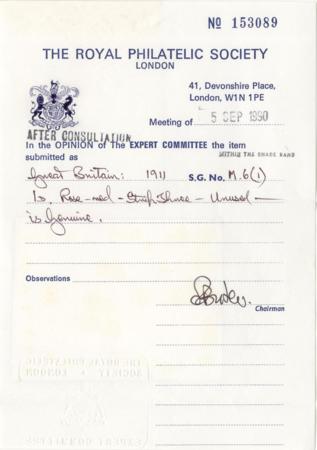 No 153089
THE ROYAL PHILATELIC SOCIETY
LONDON
41, Devonshire Place,
London, W1N 1PE
Meeting of 5 SEP 1990
AFTER CONSULTATION
In the OPINION of The EXPERT COMMITTEE the item
WITHIN THE SHADE BAND
submitted as
Great Britain: 1911 S.G. No. M.6(1)
1d. Rose-red - Strip Three - Unused -
is Genuine.
Observations
Chairman
THE ROYAL PHILATELIC
SOCIETY LONDON
EXPERT COMMITTEE